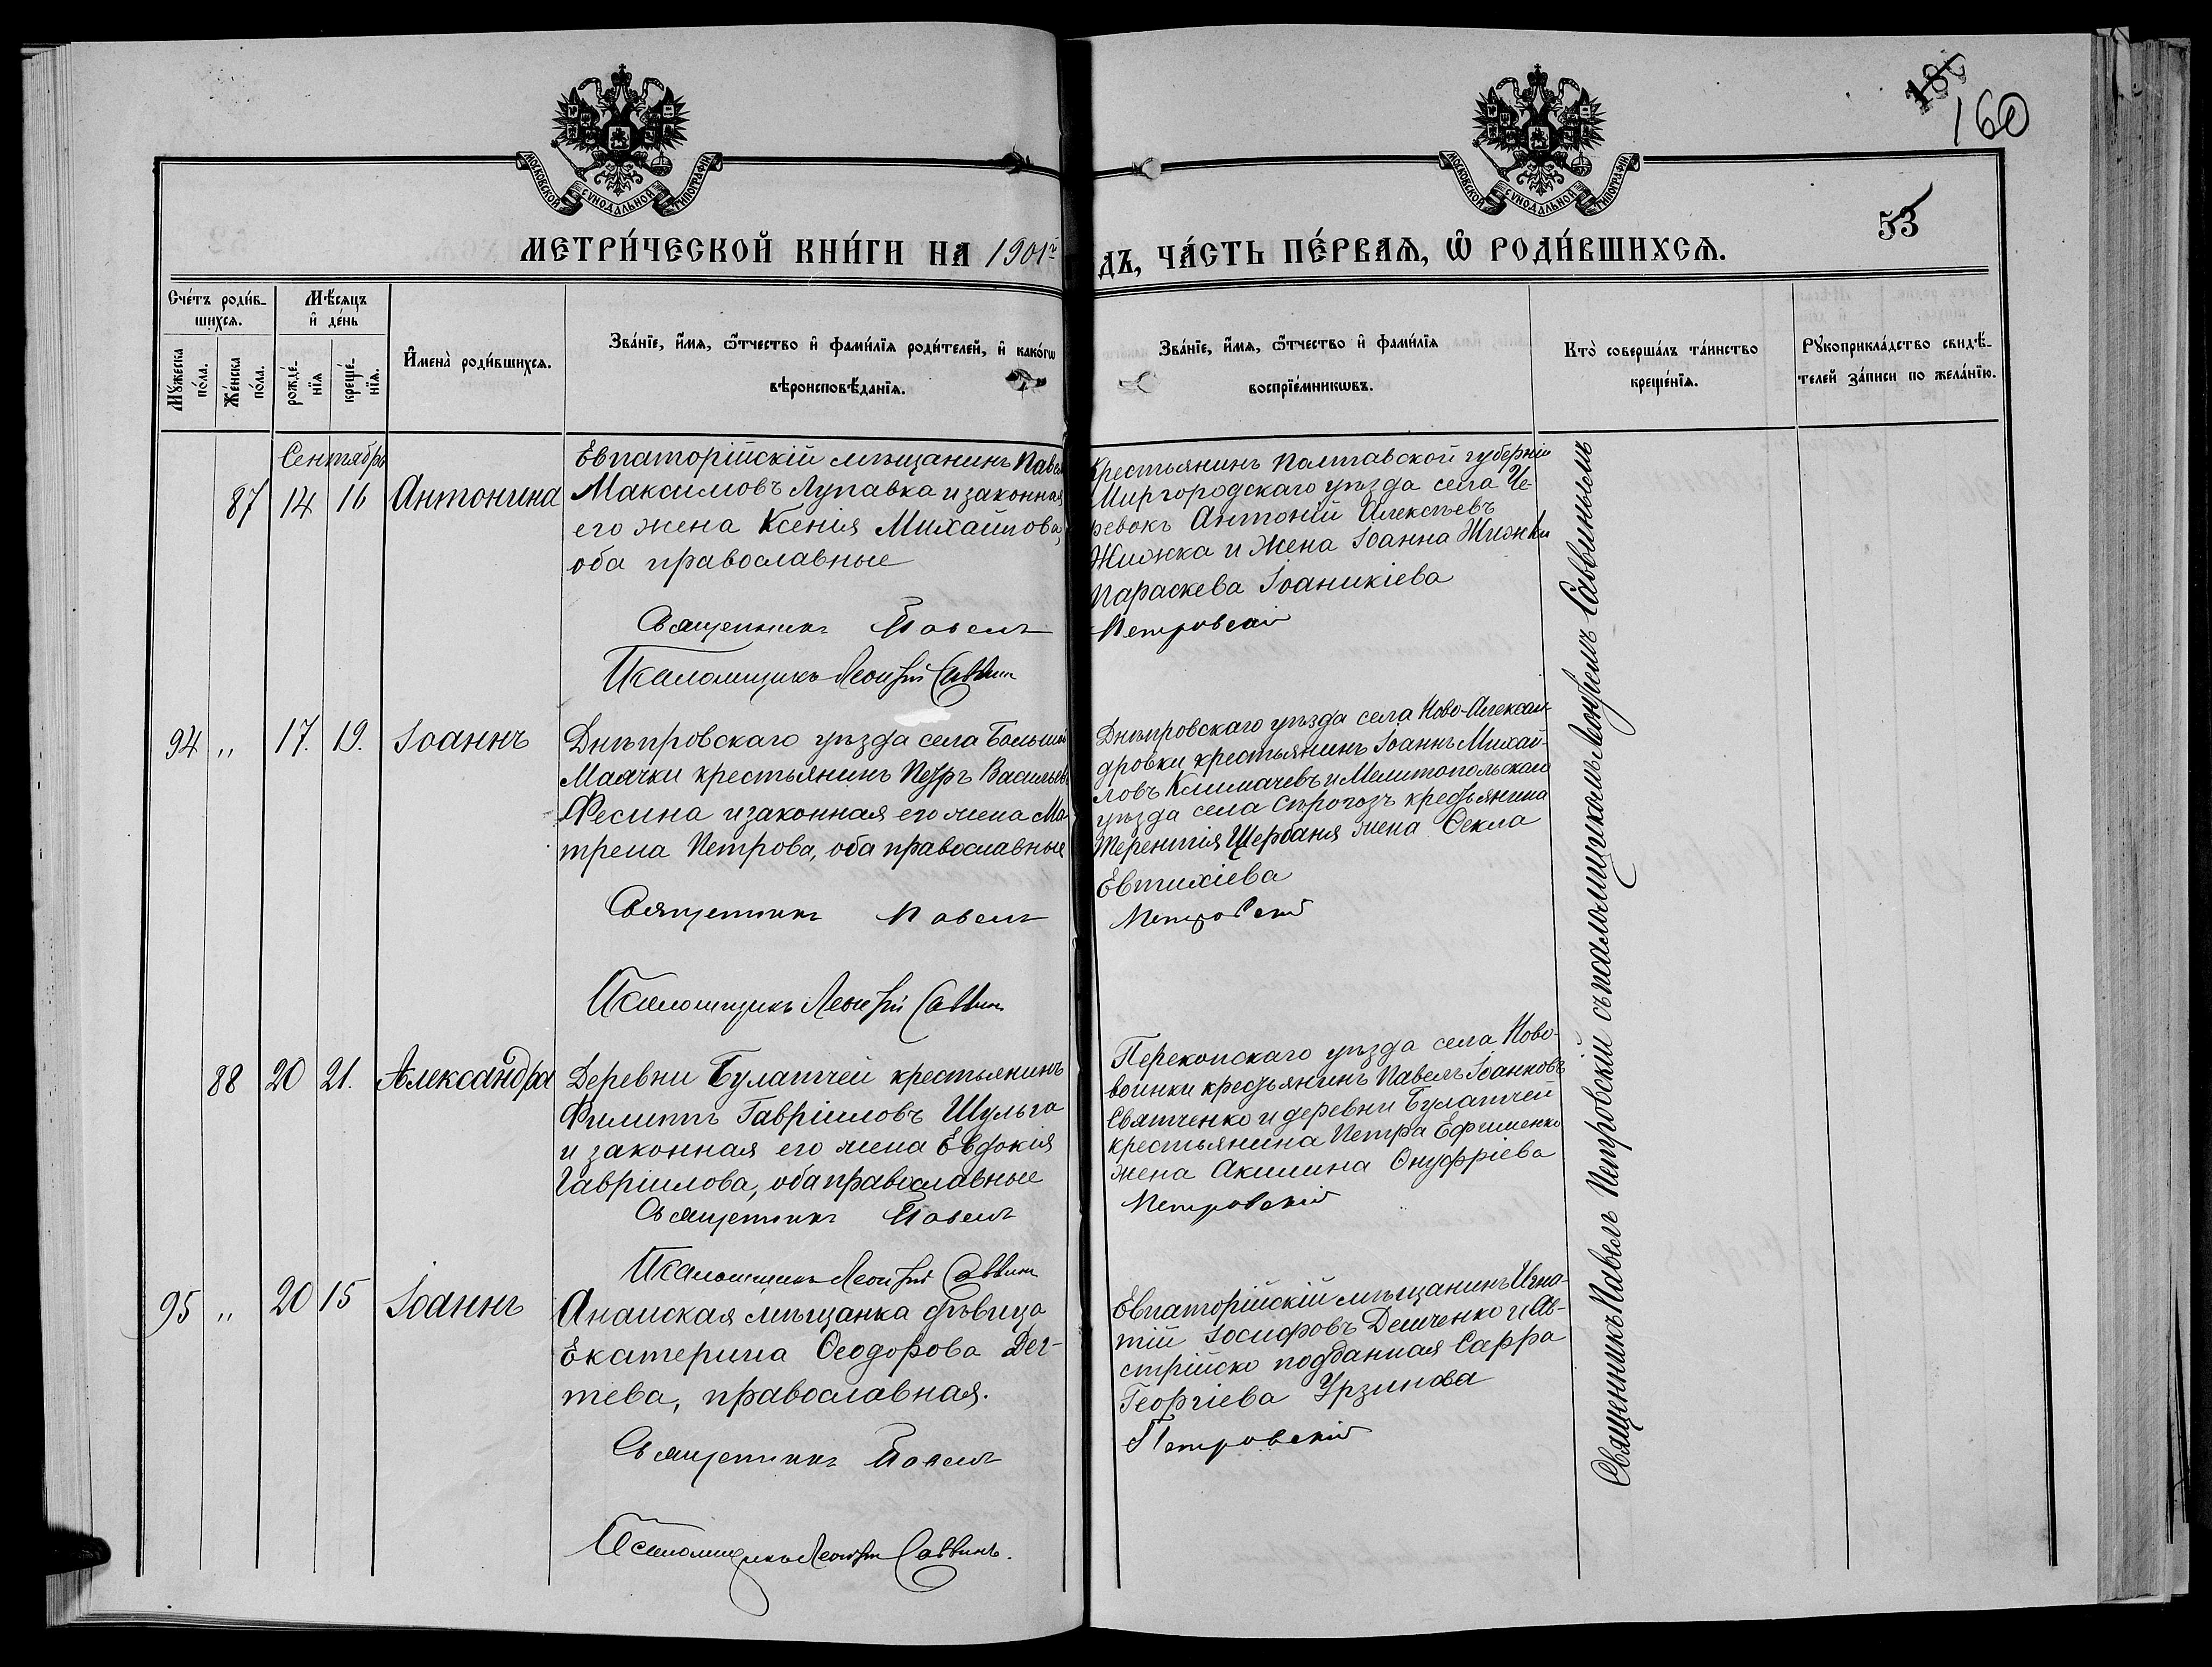 МОСКОВСКОЙ СУНОДАЛЬНОЙ ТИПОГРАФІИ
МОСКОВСКОЙ СУНОДАЛЬНОЙ ТИПОГРАФІИ
160
53
МЕТРИ́ЧЕСКОЙ КНИ́ГИ НА 1901й
ДЪ, ЧА́СТЬ ПЕ́РВАѦ, Ѡ РОДИ́ВШИХСѦ.
Сче́тъ роди́в-
шихсѧ.
Мꙋжеска по́ла.
Же́нска по́ла.
Мѣ́сѧцъ
и҆ де́нь
рожде́-
нїѧ
креще́-
нїѧ.
И҆мена̀ роди́вшихсѧ.
Зва́нїе, и҆́мѧ, ѻ҆́тчество и҆ фами́лїѧ роди́телей, и҆ како́гѡ
вѣроисповѣ́данїѧ.
Зва́нїе, и҆́мѧ, ѻ҆́тчество и҆ фами́лїѧ
воспрїе́мникѡвъ.
Кто̀ соверша́лъ та́инство
креще́нїѧ.
Рꙋкоприкла́дство свидѣ́-
телей за́писи по жела́нїю.
Сентябрь
87 14 16 Антонина
Евпаторійскій мѣщанинъ Павелъ
Максимовъ Лупавка и законная
его жена Ксенія Михайлова,
оба православные
Священникъ Павелъ
Псаломщикъ Леонтій Саввин
Крестьянинъ Полтавской губерніи
Миргородскаго уѣзда села Че-
ревокъ Антоній Алексѣевъ
Жижка и жена Іоанна Жижки
Параскева Іоаникіева
Петровскій
94 " 17. 19. Іоаннъ
Днѣпровскаго уѣзда села Большой
Маячки крестьянинъ Петръ Васильевъ
Фесина и законная его жена Ма-
трена Петрова, оба православные
Священникъ Павелъ
Псаломщикъ Леонтій Саввин
Днѣпровскаго уѣзда села Ново-Алексан-
дровки крестьянинъ Іоаннъ Михай-
ловъ Климачевъ и Мелитопольскаго
уѣзда села Сѣрогозъ крестьянина
Терентія Щербаня жена Ѳекла
Евтихіева
Петровскій
88 20 21. Александра
Деревни Булатчей крестьянинъ
Филиппъ Гавріиловъ Шульга
и законная его жена Евдокія
Гавріилова, оба православные
Священникъ Павелъ
Псаломщикъ Леонтій Саввин
Перекопскаго уѣзда села Ново-
воинки крестьянинъ Павелъ Іоанновъ
Святченко и деревни Булатчей
крестьянина Петра Ефименко
жена Акилина Онуфріева
Петровскій
95 " 20 15 Іоаннъ
Анапская мѣщанка дѣвица
Екатерина Ѳеодорова Дег-
тева, православная.
Священникъ Павелъ
Псаломщикъ Леонтій Саввинъ.
Евпаторійскій мѣщанинъ Игна-
тій Іосифовъ Демченко и Ав-
стрійско подданная Сарра
Георгіева Урзинова
Петровскій
Священникъ Павелъ Петровскій съ псаломщикомъ Леонтіемъ Саввинымъ